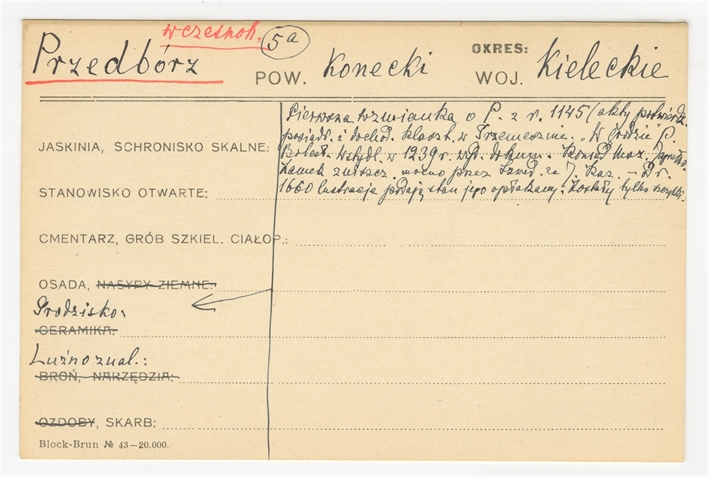 wczesnoh. 5a
Przedbórz POW. Konecki OKRES: WOJ. Kieleckie
Pierwsza wzmianka o P. z r. 1145 (akty potwierdz.
posiadł. i dochod. klaszt. w Trzemesznie. „W grodzie" P.
JASKINIA, SCHRONISKO SKALNE: Bolesł. Wstydl. w 1239 r. wyd. dokum. Konrad Maz.
Zamek zniszcz. mocno przez Szwed. za J. Kaz. – Z r.
STANOWISKO OTWARTE: 1660 lustracje podają stan jego opłakany. Zostały tylko
CMENTARZ, GRÓB SZKIEL. CIAŁOP.:
OSADA, NASYPY ZIEMNE:
Grodzisko:
CERAMIKA:
Luźno znal.:
BROŃ, NARZĘDZIA:
OZDOBY, SKARB:
Block-Brun № 43—20.000.